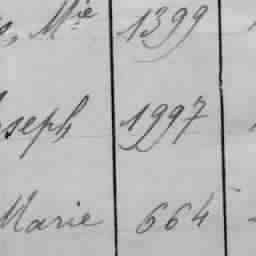 Mie 1399
Joseph 1997
Marie 664